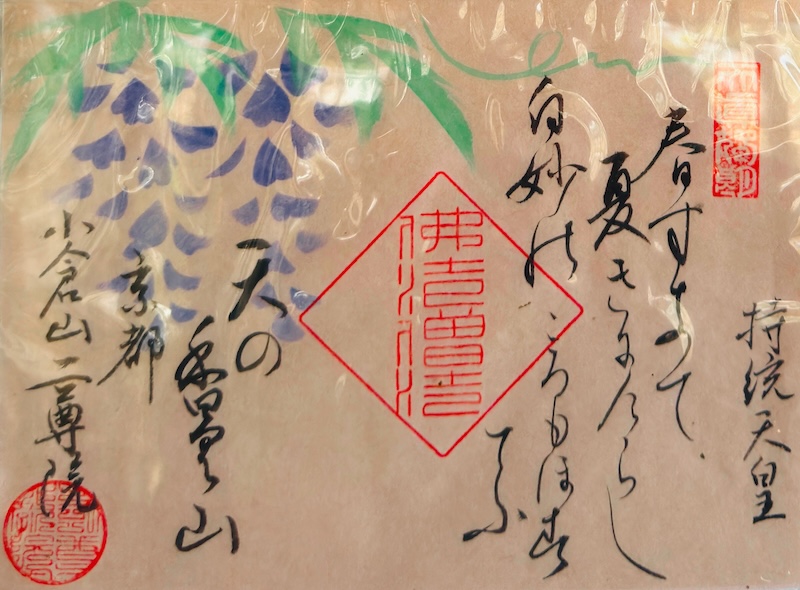 持統天皇
春すきて
夏きにけらし
白妙のころもほす
てふ
天の
香具山
京都
小倉山二尊院